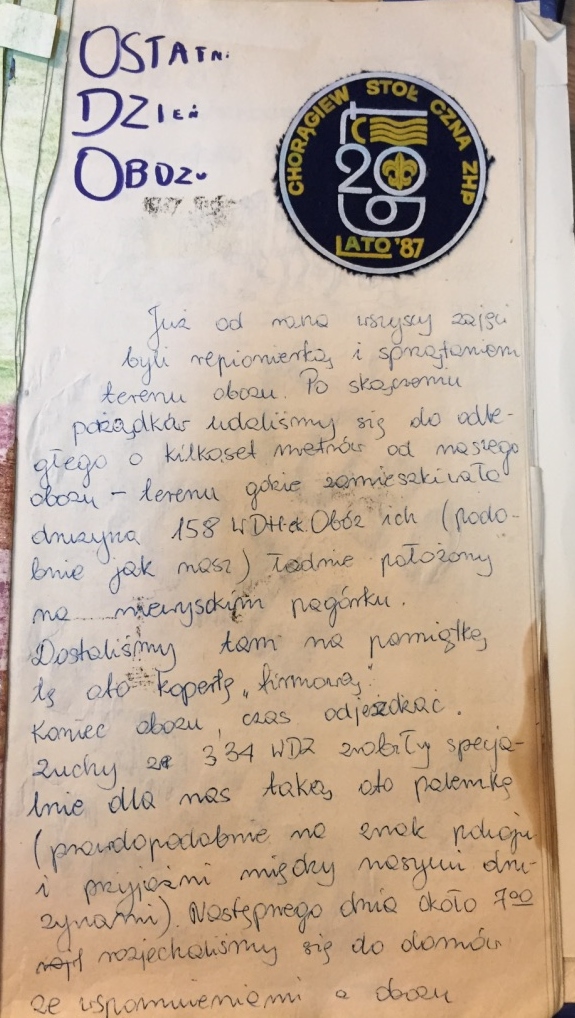 OSTATNI
DZIEŃ
OBOZU
CHORĄGIEW STOŁ CZNA ZHP
20
LATO '87
Już od rana wszyscy zajęci
byli repionierką i sprzątaniem
terenu obozu. Po skączemu
pożądków udaliśmy się do odle-
głego o kilkaset metrów od naszego
obozu – terenu gdzie zamieszkiwała
drużyna 158 WDH Obóz ich (podo-
bnie jak nasz) ładnie położony
na niewysokim pagórku.
Dostaliśmy tam na pamiątkę
tę oto kopertę „firmową”.
Koniec obozu, czas odjeżdżać.
Zuchy ze 334 WDZ zrobiły specja-
lnie dla nas taką oto palemkę
(prawdopodobnie na znak pokoju
i przyjaźni między naszymi dru-
żynami). Następnego dnia około 7⁰⁰
rozjechaliśmy się do domów
ze wspomnieniami z obozu